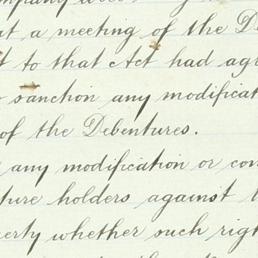 at a meeting of the D
t to that Act had agr
sanction any modificat
of the Debentures.
any modification or con
ture holders against
erty whether such righ